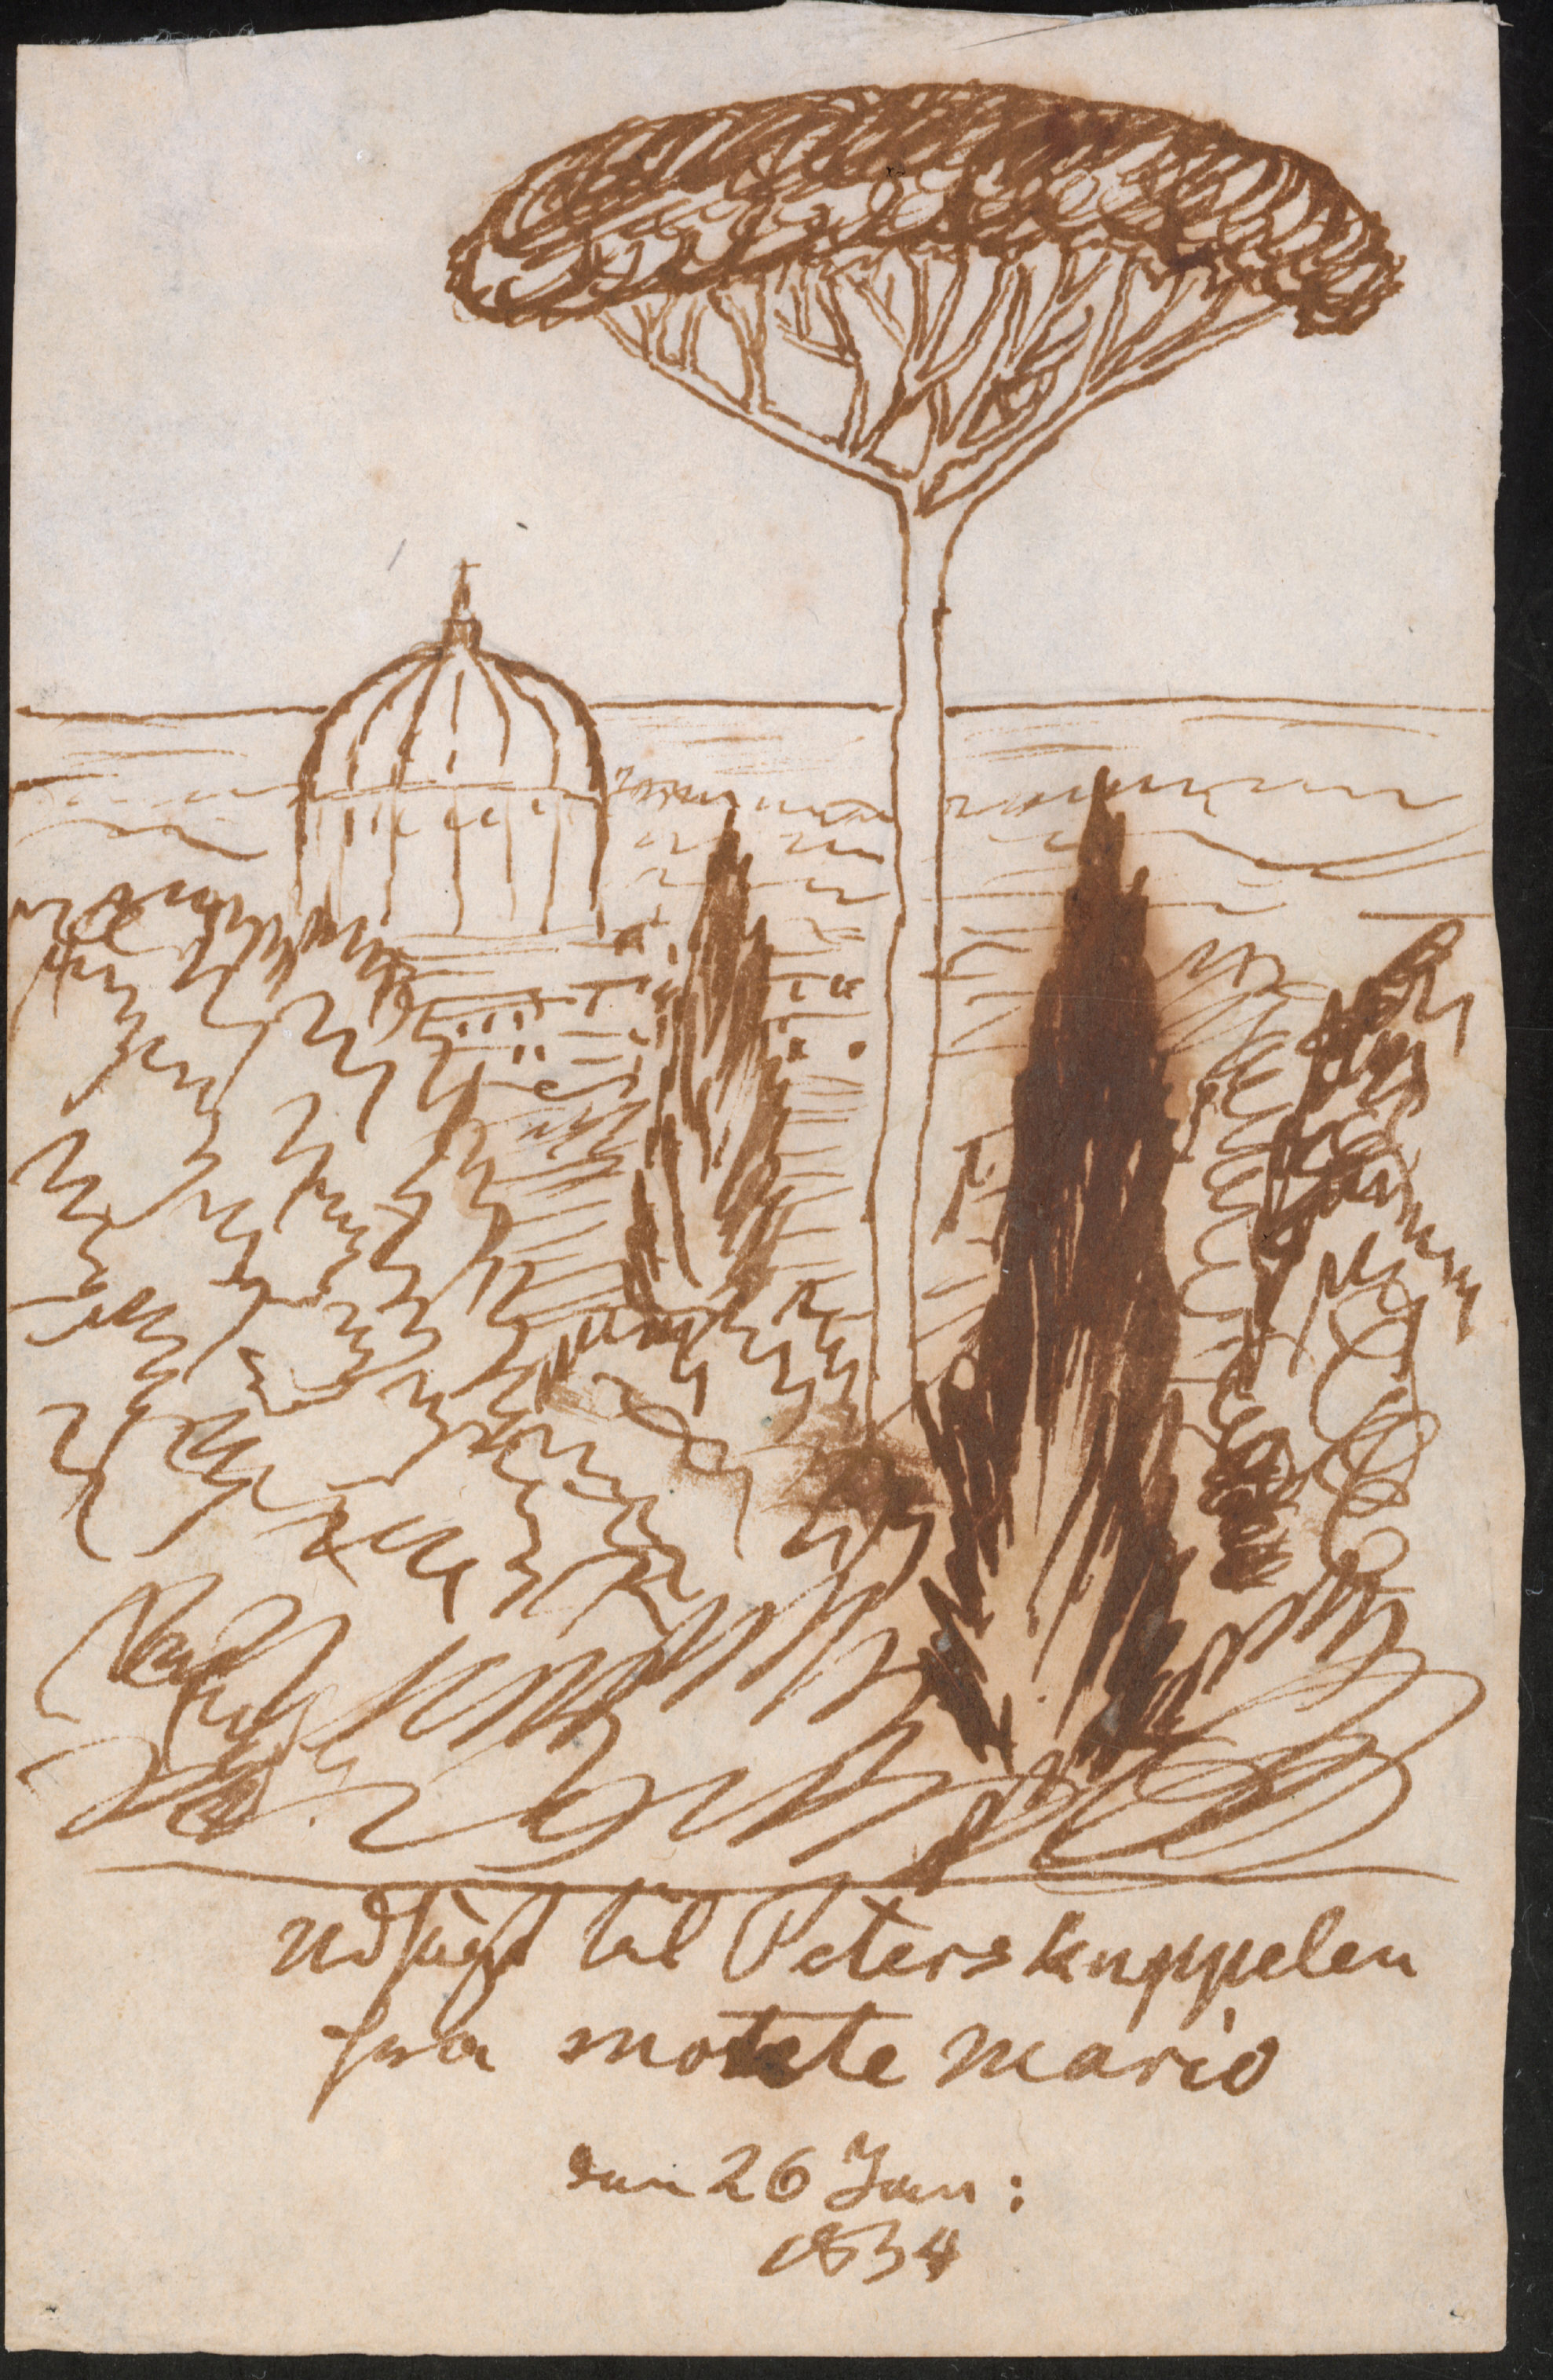 Udsigt til Peterskuppelen
fra monte mario
den 26 Jan:
1834